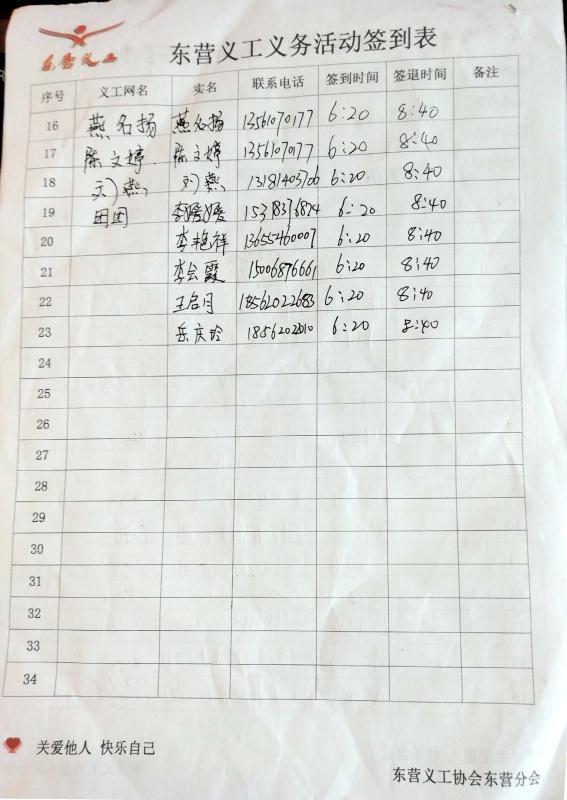 东营义工
东营义工义务活动签到表
序号 义工网名 实名 联系电话 签到时间 签退时间 备注
16 燕名扬 燕名扬 13561070177 6:20 8:40
17 陈文婷 陈文婷 13561070177 6:20 8:40
18 刘燕 刘燕 13181403700 6:20 8:40
19 田田 李媛媛 15318376874 6:20 8:40
20 李艳祥 13655460007 6:20 8:40
21 李会霞 15006876661 6:20 8:40
22 王启月 18562022683 6:20 8:40
23 岳庆玲 6:20 8:40
24
25
26
27
28
29
30
31
32
33
34
关爱他人 快乐自己
东营义工协会东营分会